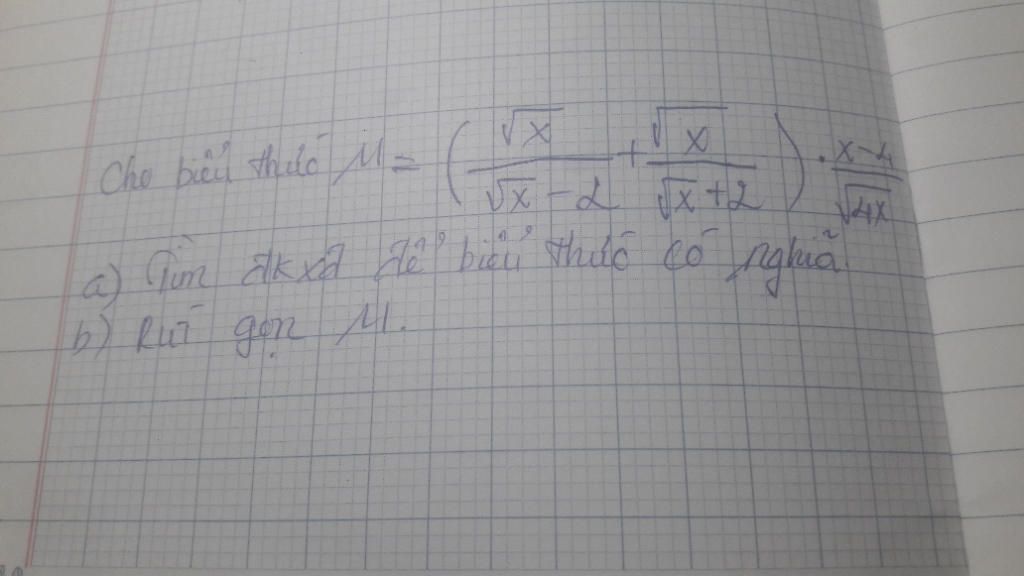 Cho biểu thức M = (√x / (√x - 2) + √x / (√x + 2)) . (x - 4) / √4x
a) Tìm đkxđ để biểu thức có nghĩa.
b) Rút gọn M.